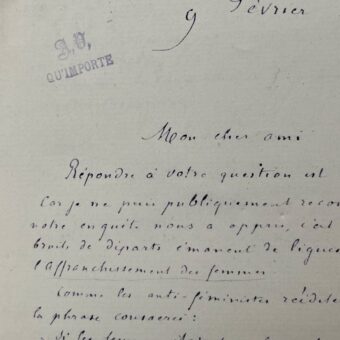 9 Février
A.V,
QU'IMPORTE
Mon cher ami
Répondre à votre question est
Car je ne puis publiquement recon
votre enquête nous a appris, c'est
bruits de départs émanent de ligues
l'affranchissement des femmes
Comme les anti-féministes réédite
la phrase consacrée :
" Si les femmes